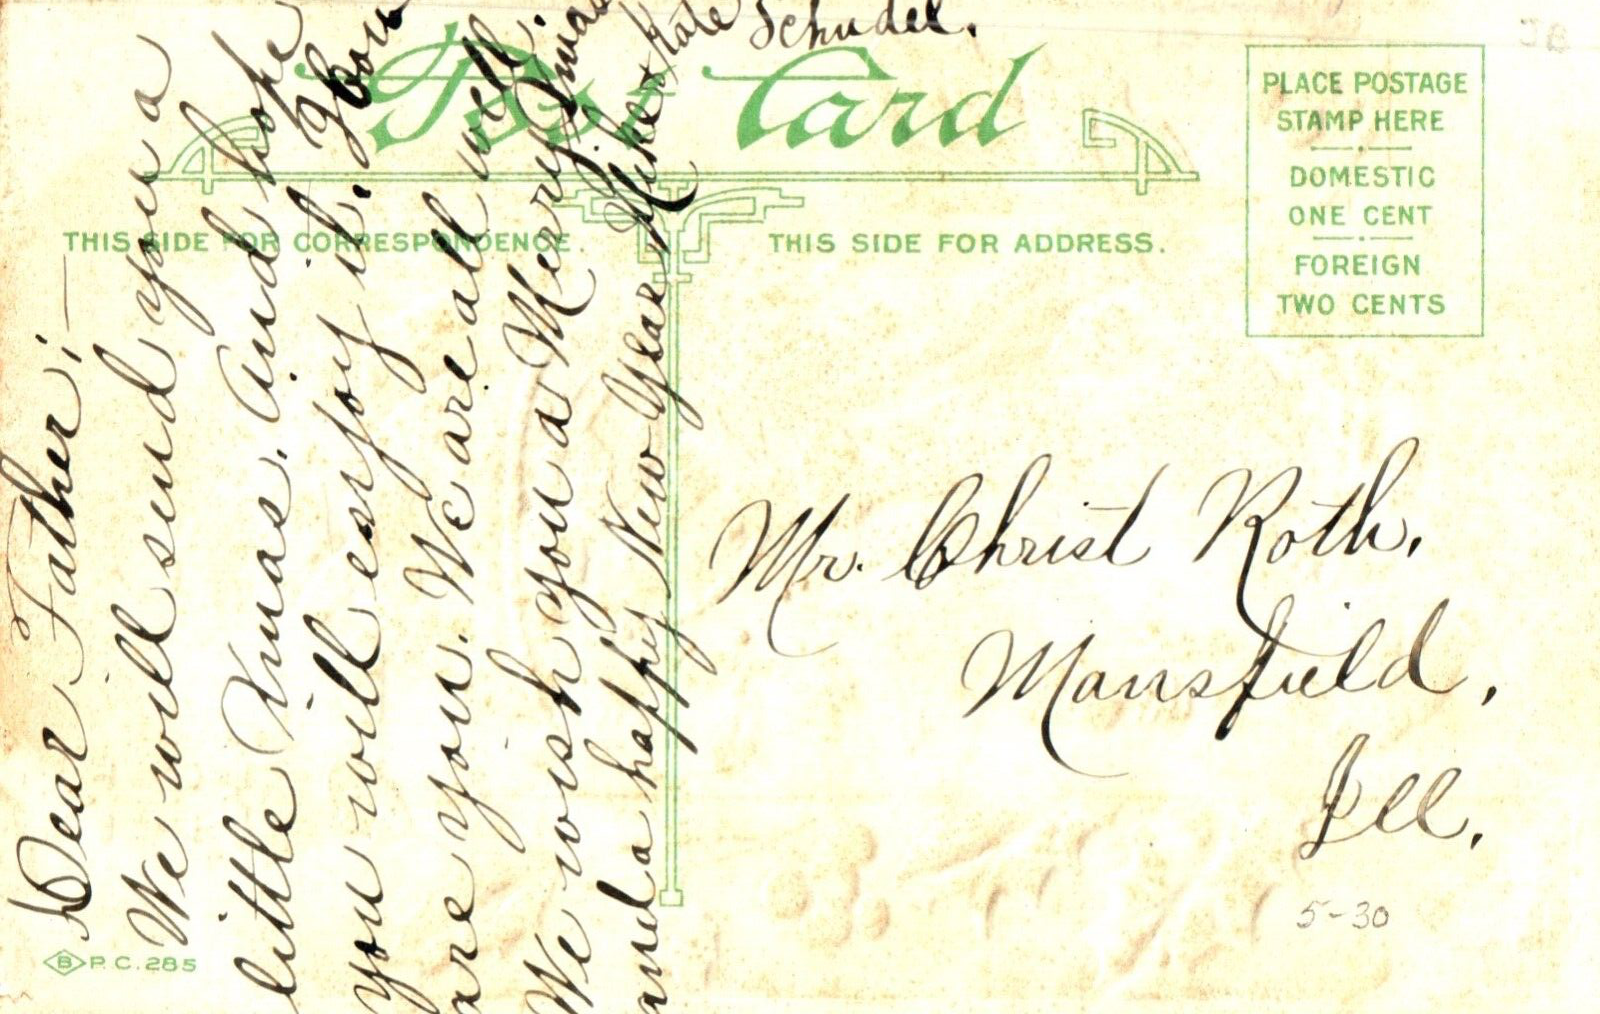 Post Card
PLACE POSTAGE
STAMP HERE
DOMESTIC
ONE CENT
FOREIGN
TWO CENTS
THIS SIDE FOR CORRESPONDENCE.
THIS SIDE FOR ADDRESS.
Dear Father;
We will send you a
little Xmas. And hope
you will enjoy it. How
are you. We are all well.
We wish you a Merry Xmas
and a happy New Year
Mike & Kate Schudel.
Mr. Christ Roth,
Mansfield,
Ill.
5-30
B P.C. 285